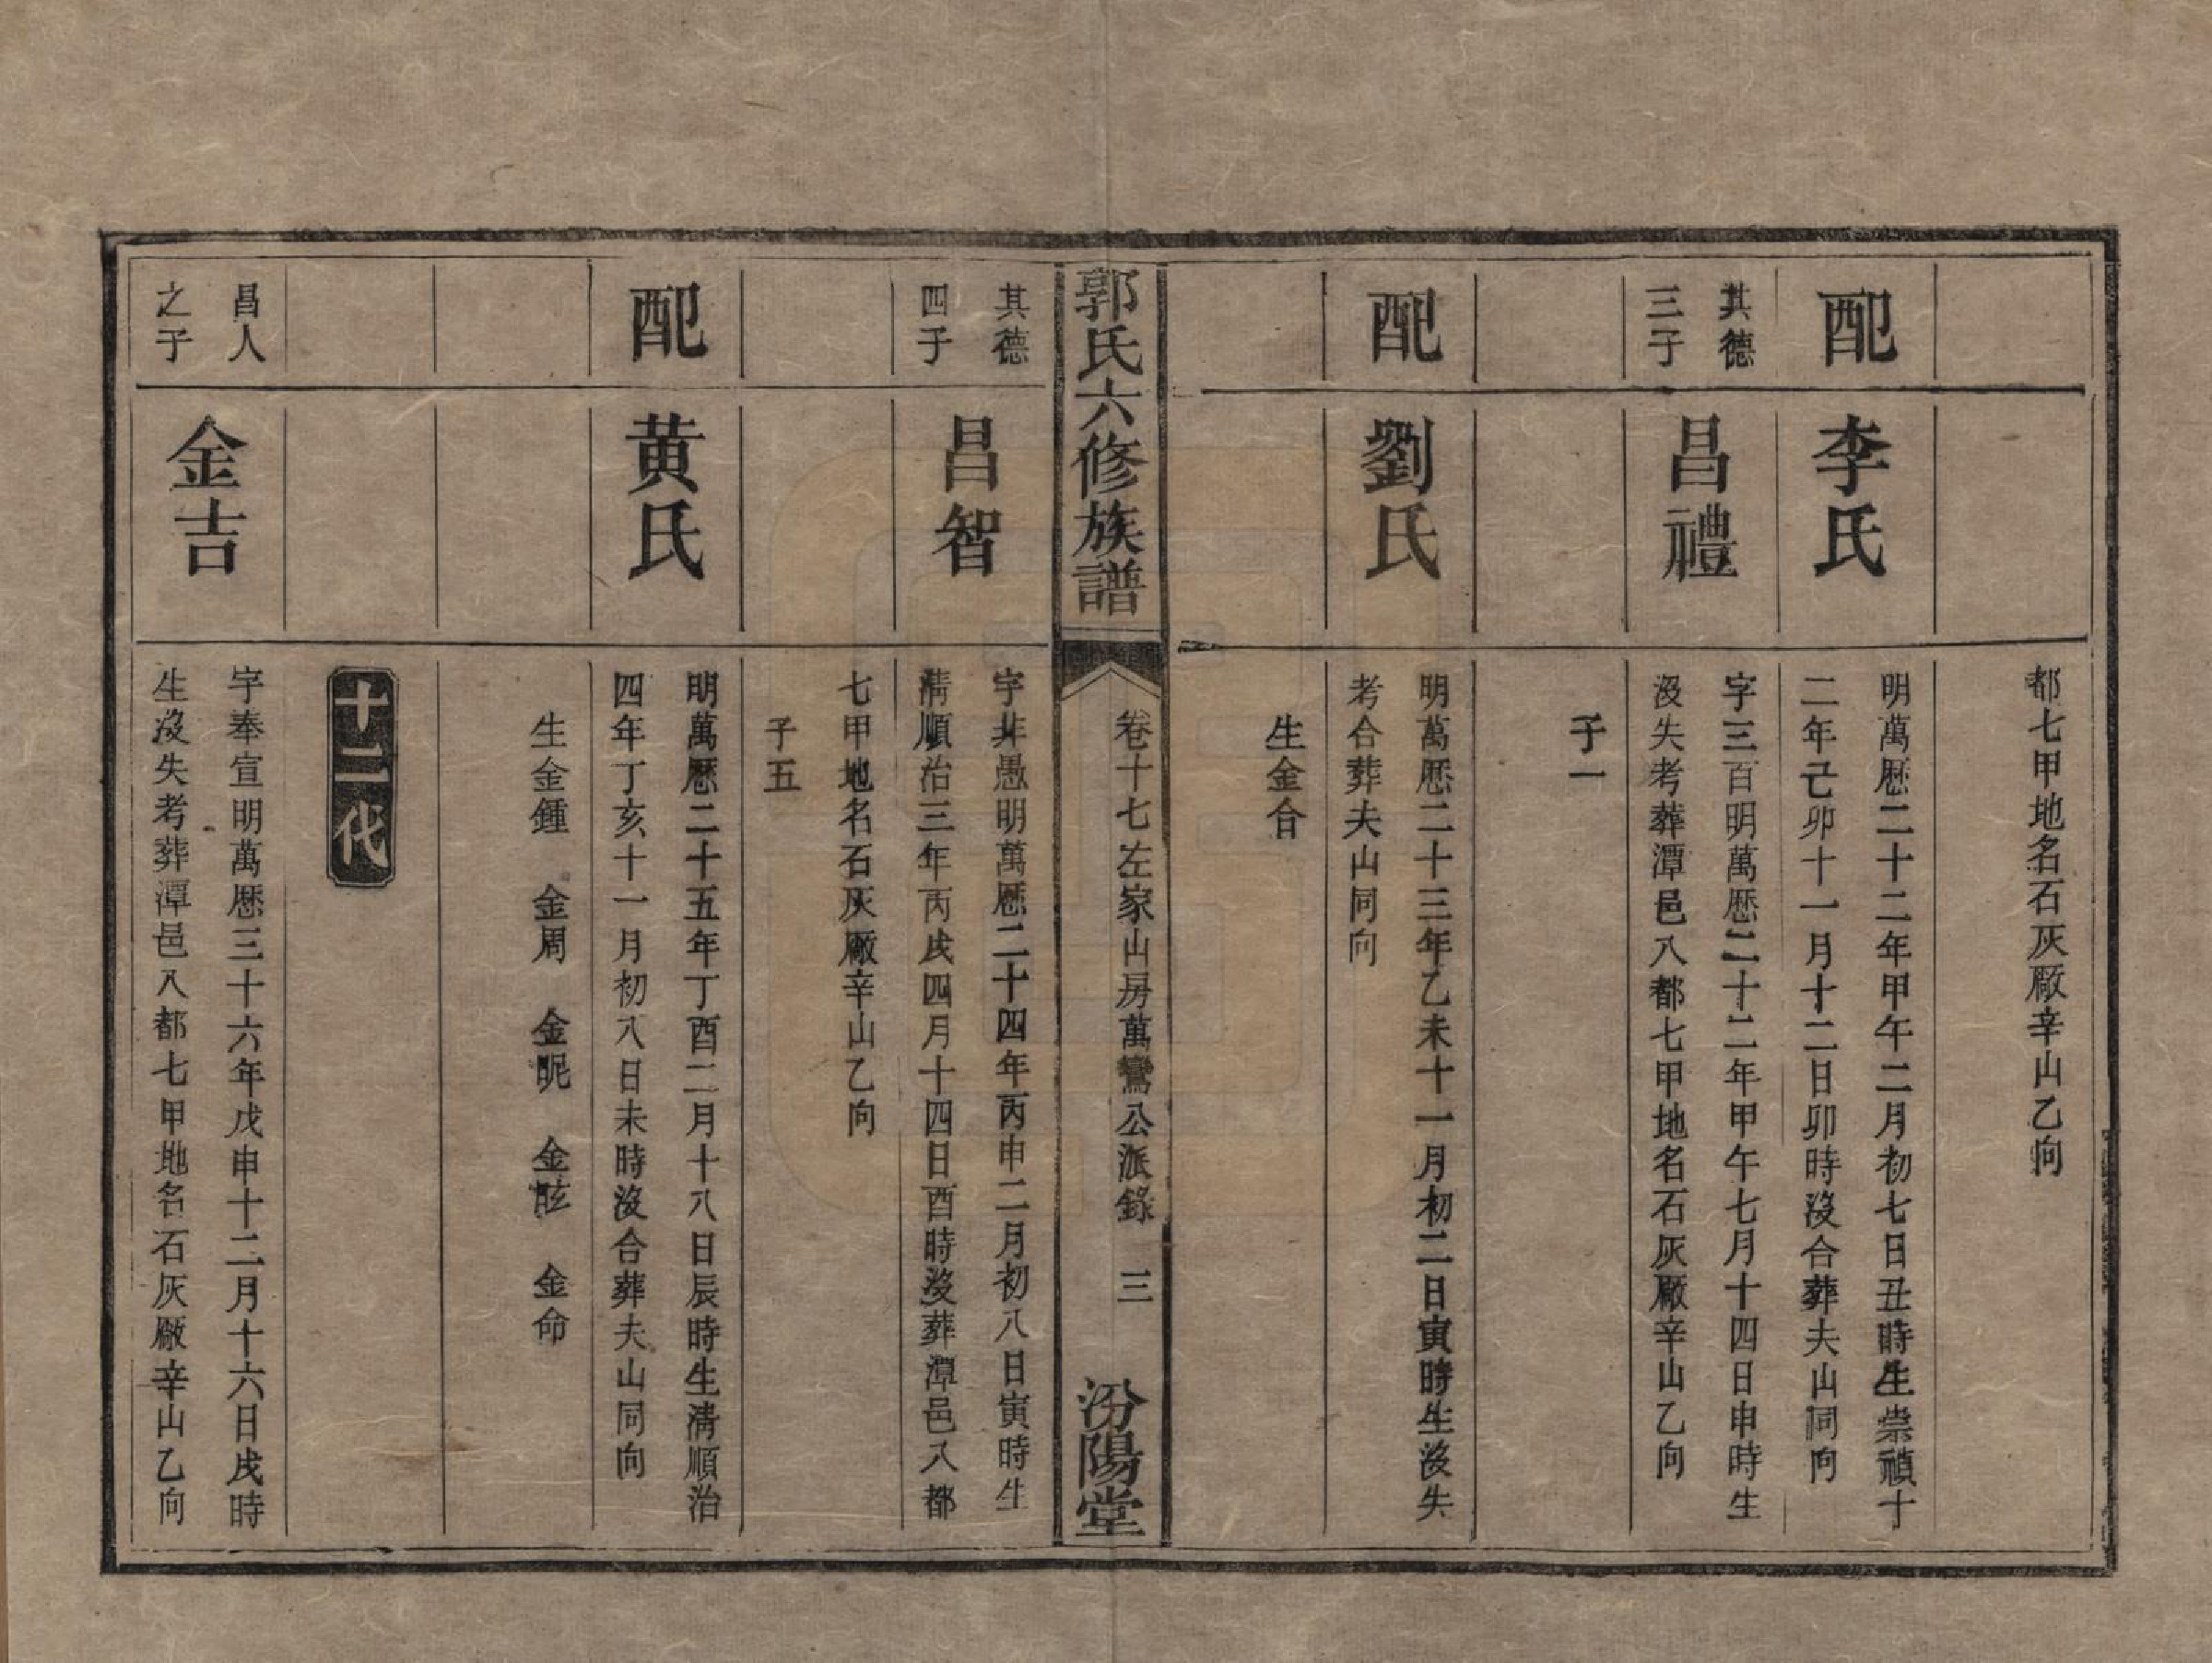 都七甲地名石灰厰辛山乙向
配
李氏
明萬歴二十二年甲午二月初七日丑時生崇禎十
二年己卯十一月十二日卯時沒合葬夫山同向
其德
三子
昌禮
字三百明萬歴二十二年甲午七月十四日申時生
沒失考葬潭邑八都七甲地名石灰厰辛山乙向
子一
配
劉氏
明萬歴二十三年乙未十一月初二日寅時生沒失
考合葬夫山同向
生金台
郭氏六修族譜
卷十七左家山房萬鸞公派錄
三
汾陽堂
其德
四子
昌智
字非愚明萬歴二十四年丙申二月初八日寅時生
淸順治三年丙戌四月十四日酉時沒葬潭邑八都
七甲地名石灰厰辛山乙向
子五
配
黄氏
明萬歴二十五年丁酉二月十八日辰時生淸順治
四年丁亥十一月初八日未時沒合葬夫山同向
生金鍾 金周 金昵 金眩 金命
十二代
昌人
之子
金吉
字奉宣明萬歴三十六年戊申十二月十六日戌時
生沒失考葬潭邑八都七甲地名石灰厰辛山乙向